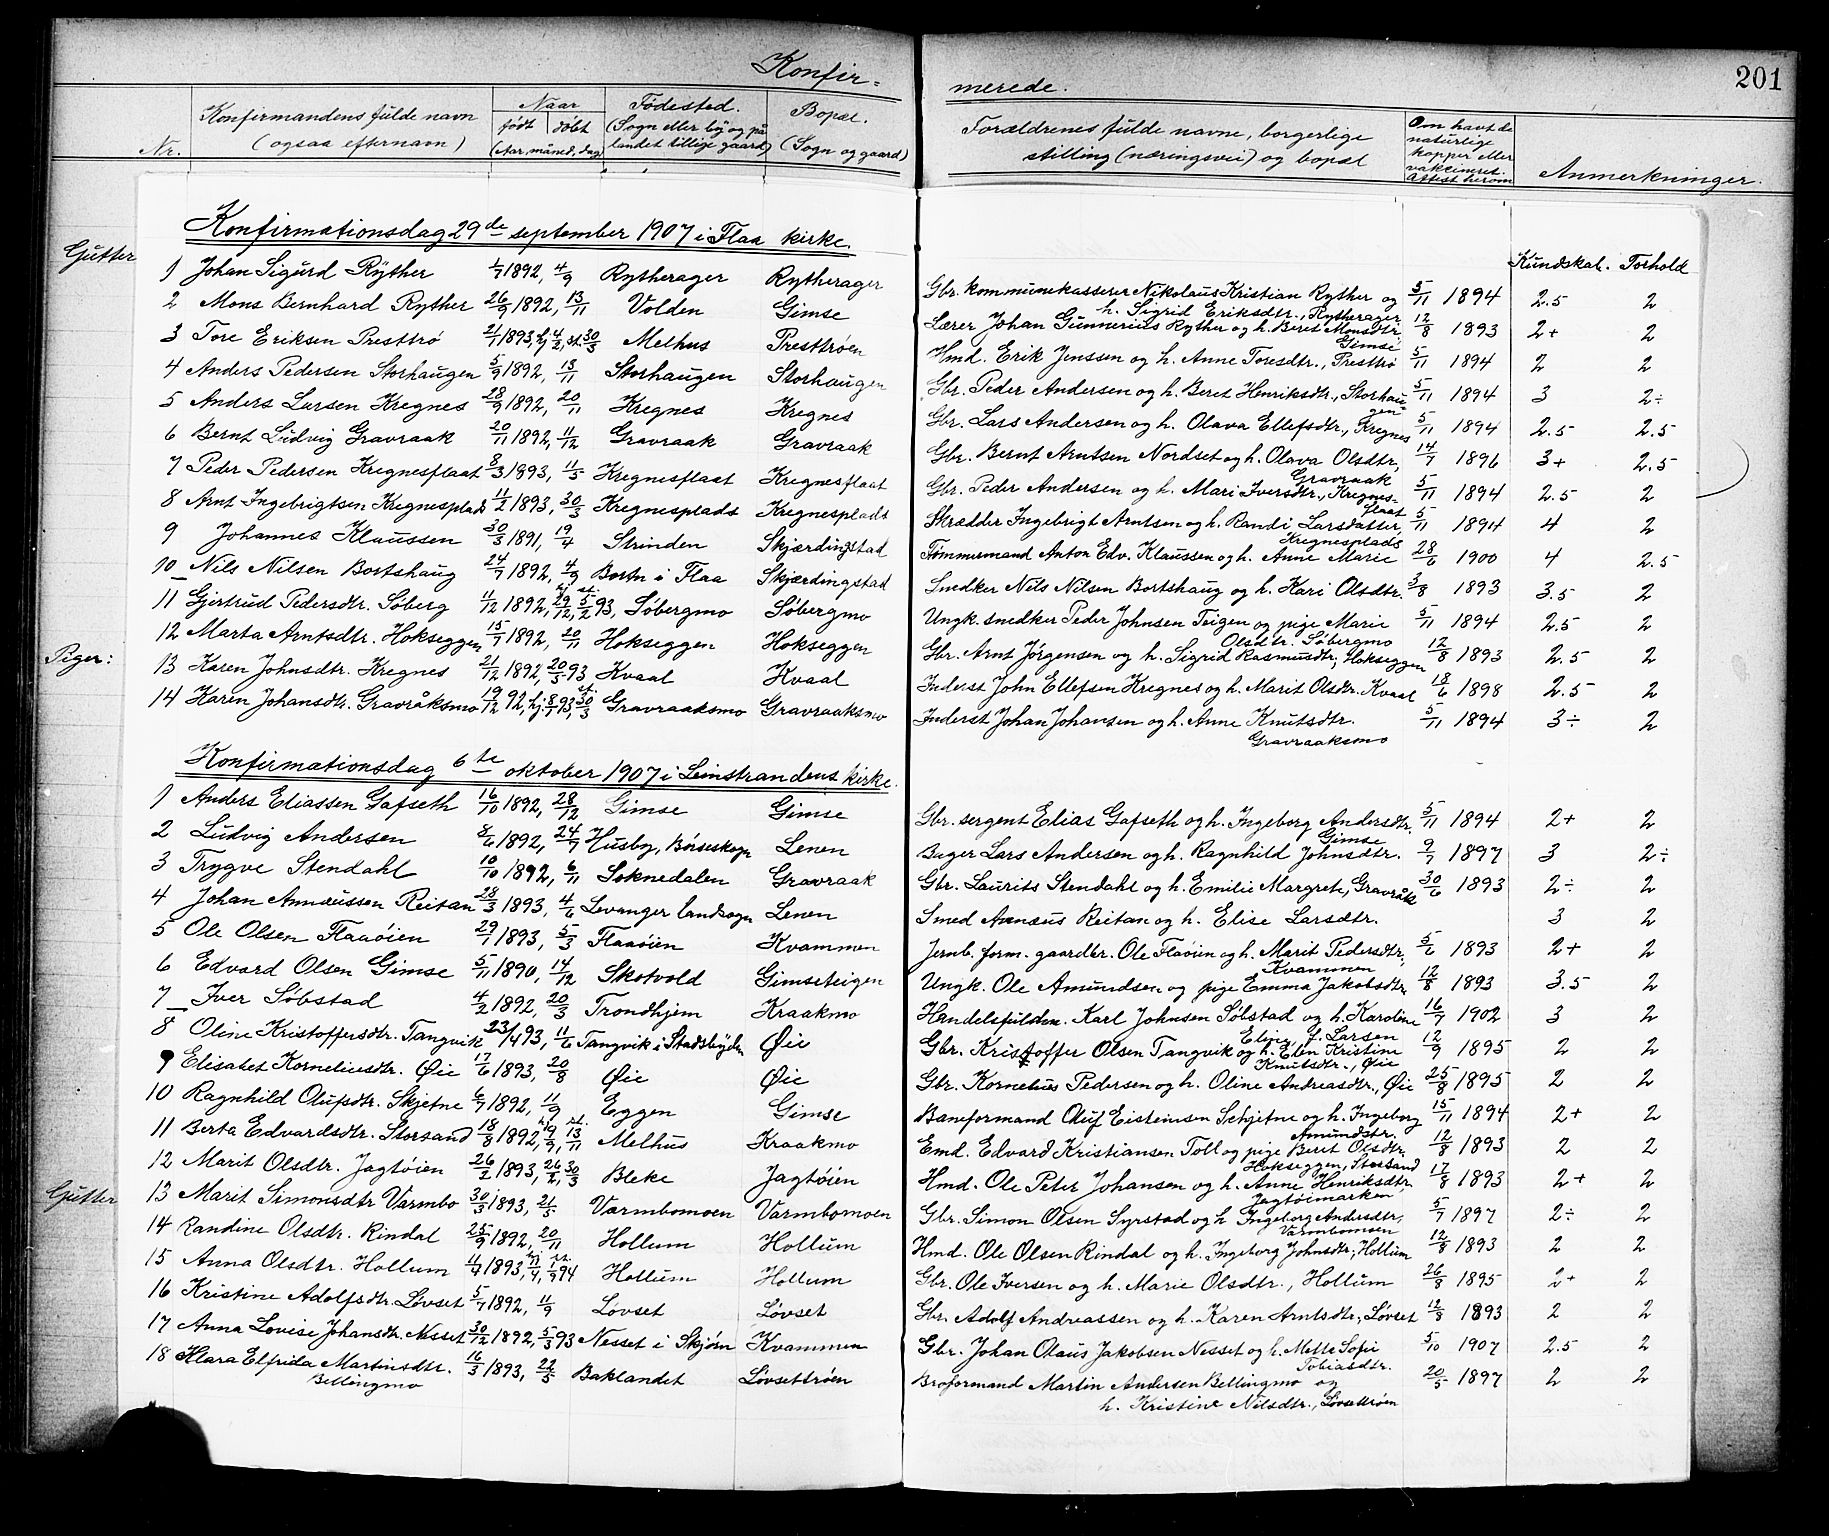 Konfir-
merede.
201
Nr.
Konfirmandens fulde navn
(ogsaa efternavn)
Naar
født | döbt
(Aar, måned, dag)
Födested.
(Sogn eller by og på
landet tillige gaard)
Bopæl.
(Sogn og gaard)
Forældrenes fulde navne, borgerlige
stilling (næringsvei) og bopæl
Om havt de
naturlige
kopper eller
vakcineret.
Attest herom
Anmerkninger.
Konfirmationsdag 29de september 1907 i Flaa kirke.
Kundskab. Forhold
Gutter
1 Johan Sigurd Ryther 1/7 1892, 4/9 Rytherager Rytherager Gbr. kommunekasserer Nikolaus Kristian Ryther og h. Sigrid Eriksdtr., Rytherager 5/11 1894 2.5 2
2 Mons Bernhard Ryther 26/9 1892, 13/11 Volden Gimse Lærer Johan Gunnerius Ryther og h. Beret Monsdtr Gimse 12/8 1893 2+ 2
3 Tore Eriksen Presttrö 21/1 1893, hj 4/2, st. 30/3 Melhus Presttröen Hmd. Erik Jenssen og h. Anne Toresdtr., Presttrö 5/11 1894 2 2
4 Anders Pedersen Storhaugen 5/9 1892, 13/11 Storhaugen Storhaugen Gbr. Peder Andersen og h. Beret Henriksdtr., Storhaugen 5/11 1894 3 2÷
5 Anders Larsen Kregnes 28/9 1892, 20/11 Kregnes Kregnes Gbr. Lars Andersen og h. Olava Ellefsdtr., Kregnes 5/11 1894 2.5 2.5
6 Bernt Ludvig Gravraak 20/11 1892, 11/12 Gravraak Gravraak Gbr. Bernt Arntsen Nordset og h. Olava Olsdtr, Gravraak 14/7 1896 3+ 2.5
7 Peder Pedersen Kregnesflaat 8/3 1893, 11/5 Kregnesflaat Kregnesflaat Gbr. Peder Andersen og h. Mari Iversdtr., Kregnes-flaat 5/11 1894 2.5 2
8 Arnt Ingebrigtsen Kregnesplads 11/2 1893, 30/3 Kregnesplads Kregnesplads Skrædder Ingebrigt Arntsen og h. Randi Larsdatter Kregnesplads 5/11 1894 4 2
9 Johannes Klaussen 30/3 1891, 19/4 Strinden Skjærdingstad Tömmermand Anton Edv. Klaussen og h. Anne Marie 28/6 1900 4 2.5
10 Nils Nilsen Bortshaug 24/7 1892, 4/9 Bortn i Flaa Skjærdingstad Snedker Nils Nilsen Bortshaug og h. Kari Olsdtr. 3/8 1893 3.5 2
Piger:
11 Gjertrud Pedersdtr. Söberg 11/12 1892, hj. 29/12, st. 5/2 93, Söbergmo Söbergmo Ungk. snedker Peder Johnsen Teigen og pige Marie Olsdtr. Söbergmo 5/11 1894 2.5 2
12 Marta Arntsdtr. Hokseggen 15/7 1892, 20/11 Hokseggen Hokseggen Gbr. Arnt Jörgensen og h. Sigrid Rasmusdtr, Hokseggen 12/8 1893 2.5 2
13 Karen Johnsdtr. Kregnes 21/12 1892, 20/5 93 Kvaal Kvaal Inderst John Ellefsen Kregnes og h. Marit Olsdtr. Kvaal 18/6 1898 2.5 2
14 Karen Johansdtr. Gravråksmo 19/12 92, hj. 8/1 93, st. 30/3 Gravraaksmo Gravraaksmo Inderst Johan Johansen og h. Anne Knutsdtr. Gravraaksmo 5/11 1894 3÷ 2
Konfirmationsdag 6te oktober 1907 i Leinstrandens kirke.
1 Anders Eliassen Gafseth 16/10 1892, 28/12 Gimse Gimse Gbr. sergent Elias Gafseth og h. Ingeborg Andersdtr, Gimse 5/11 1894 2+ 2
2 Ludvig Andersen 8/6 1892, 24/7 Husby, Börseskogn Lenen Bager Lars Andersen og h. Ragnhild Johnsdtr. 9/7 1897 3 2÷
3 Trygve Stendahl 10/10 1892, 6/11 Soknedalen Gravraak Gbr. Laurits Stendahl og h. Emilie Margrete, Gravråk 30/6 1893 2÷ 2
4 Johan Annæussen Reitan 28/3 1893, 4/6 Levanger landsogn Lenen Smed Annæus Reitan og h. Elise Larsdtr. 3 2
5 Ole Olsen Flaaöien 29/1 1893, 5/3 Flaaöien Kvammen Jernb. form. gaardbr. Ole Flaöien og h. Marit Pedersdtr, Kvammen 5/6 1893 2+ 2
6 Edvard Olsen Gimse 5/11 1890, 14/12 Skotvold Gimseteigen Ungk. Ole Amundsen og pige Emma Jakobsdtr 12/8 1893 3.5 2
7 Iver Söbstad 4/2 1892, 20/3 Trondhjem Kraakmo Handelsfuldm. Karl Johnsen Söbstad og h. Karoline Eline, f. Larsen 16/7 1902 3 2
8 Oline Kristoffersdtr. Tangvik 23/4 93, 11/6 Tangvik i Stadsbyden Øie Gbr. Kristoffer Olsen Tangvik og h. Elen Kristine Knutsdtr., Øie 12/9 1895 2 2
9 Elisabet Korneliesdtr. Øie 17/6 1893, 20/8 Øie Øie Gbr. Kornelius Pedersen og h. Oline Andreasdtr., Øie 25/8 1895 2 2
10 Ragnhild Olufsdtr. Skjetne 6/7 1892, 11/9 Eggen Gimse Baneformand Oluf Eisteinsen Schjetne og h. Ingeborg Amundstr. 15/11 1894 2+ 2
11 Berta Edvardsdtr. Storsand 18/8 1892, hj. 19/9, st. 13/11 Melhus Kraakmo Emd. Edvard Kristiansen Toll og pige Berit Olsdtr. Hokseggen, Storsand 12/8 1893 2 2
12 Marit Olsdtr. Jagtöien 26/2 1893, 26/2, 30/3 Bleke Jagtöien Hmd. Ole Peter Johansen og h. Anne Henriksdtr, Jagtöimarken 17/8 1893 2+ 2
Gutter
13 Marit Simonsdtr Varmbo 30/3 1893, 21/5 Varmbomoen Varmbomoen Gbr. Simon Olsen Syrstad og h Ingeborg Andersdtr, Varmbomoen 5/7 1897 2÷ 2
14 Randine Olsdtr. Rindal 25/9 1892, 20/11 Hollum Hollum Hmd. Ole Olsen Rindal og h. Ingeborg Johnsdtr, Hollum 12/8 1893 2 2
15 Anna Olsdtr. Hollum 11/4 1893, hj 17/4, st. 1/9 94 Hollum Hollum Gbr. Ole Iversen og h. Marie Olsdtr., Hollum 26/8 1895 2+ 2
16 Kristine Adolfsdtr. Lövset 5/7 1892, 11/9 Lövset Lövset Gbr. Adolf Andreassen og h. Karen Arntsdtr, Lövset 12/8 1893 2 2
17 Anna Lovise Johansdtr. Nesset 30/12 1892, 5/3 93 Nesset i Skjörn Kvammen Gbr. Johan Olaus Jakobsen Nesset og h. Mette Sofie Tobiasdtr. 5/10 1907 2.5 2
18 Klara Elfrida Martinsdtr. Bellingmo 16/3 1893, 22/5 Baklandet Lövsettröen Broformand Martin Andersen Bellingmo og h. Kristine Nilsdtr., Lövsettröen 20/5 1897 2 2